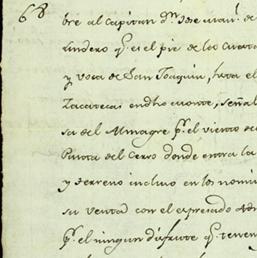 68
bre al Capitan Dn. Jose Man.l de
Lindero q.e es el pie de la Cuesta
y voca de San Joaquin, hta el
Zacatecas en dho monte, señal
sa del Milagre p.r el viento de
Punta del Cerro donde entra la
y terreno incluso en los nomi
su ventad con el expresado
p.r el ningun disfrute q.e tenem